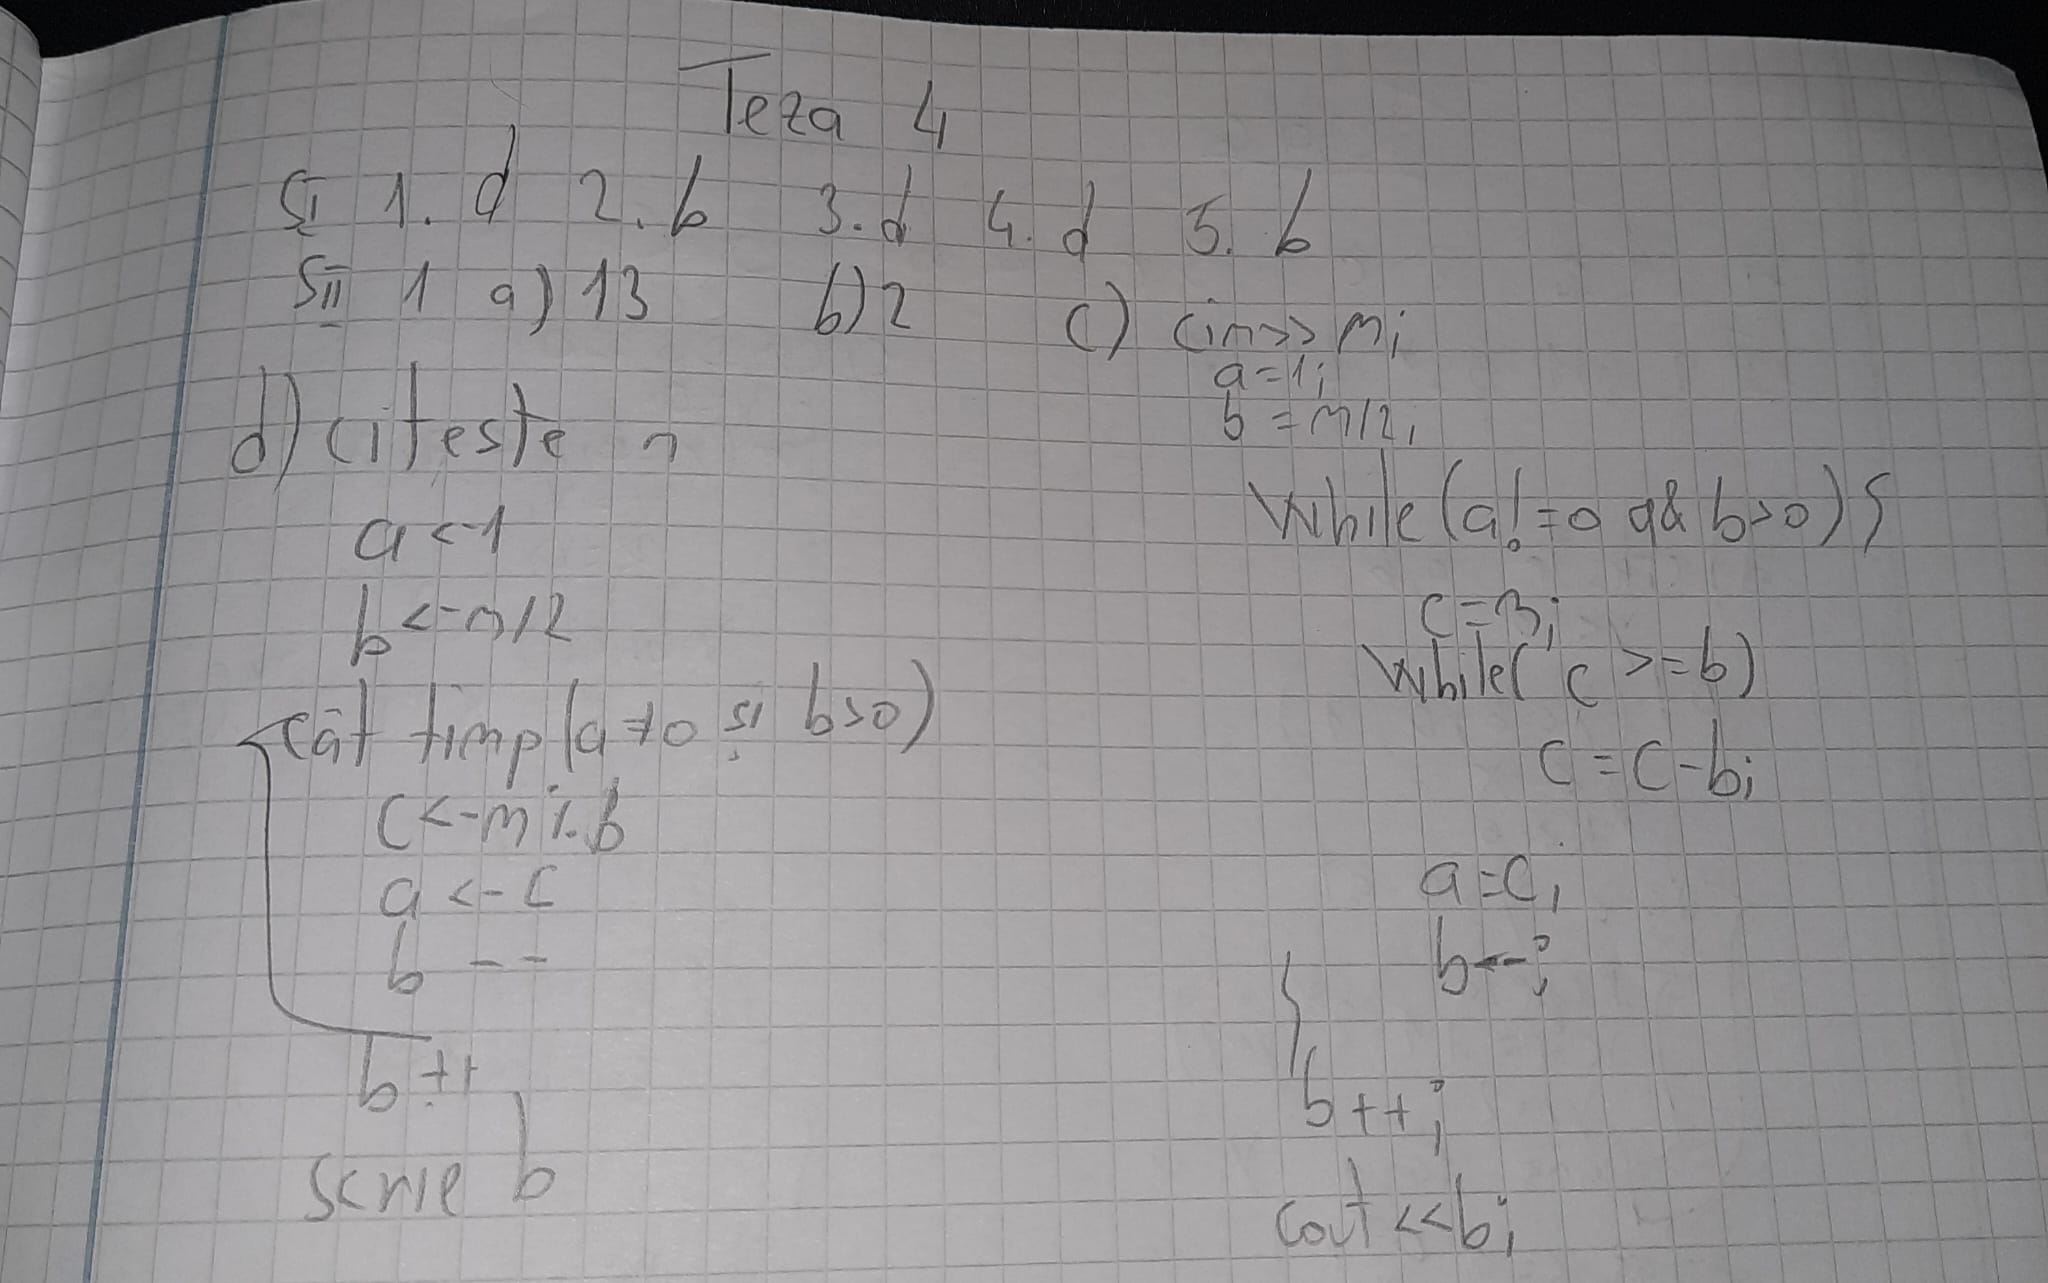 Teza 4
SI 1. d 2. b 3. d 4. d 5. b
SII 1 a) 13 b) 2 c) cin>>n;
a=1;
b=n/2;
while(a!=0 && b>0){
c=n;
while(c>=b)
c=c-b;
a=c;
b--;
}
b++;
cout<<b;
d) citeste n
a<-1
b<-n/2
cât timp(a≠0 și b>0)
c<-n%b
a<-c
b--
b++
scrie b